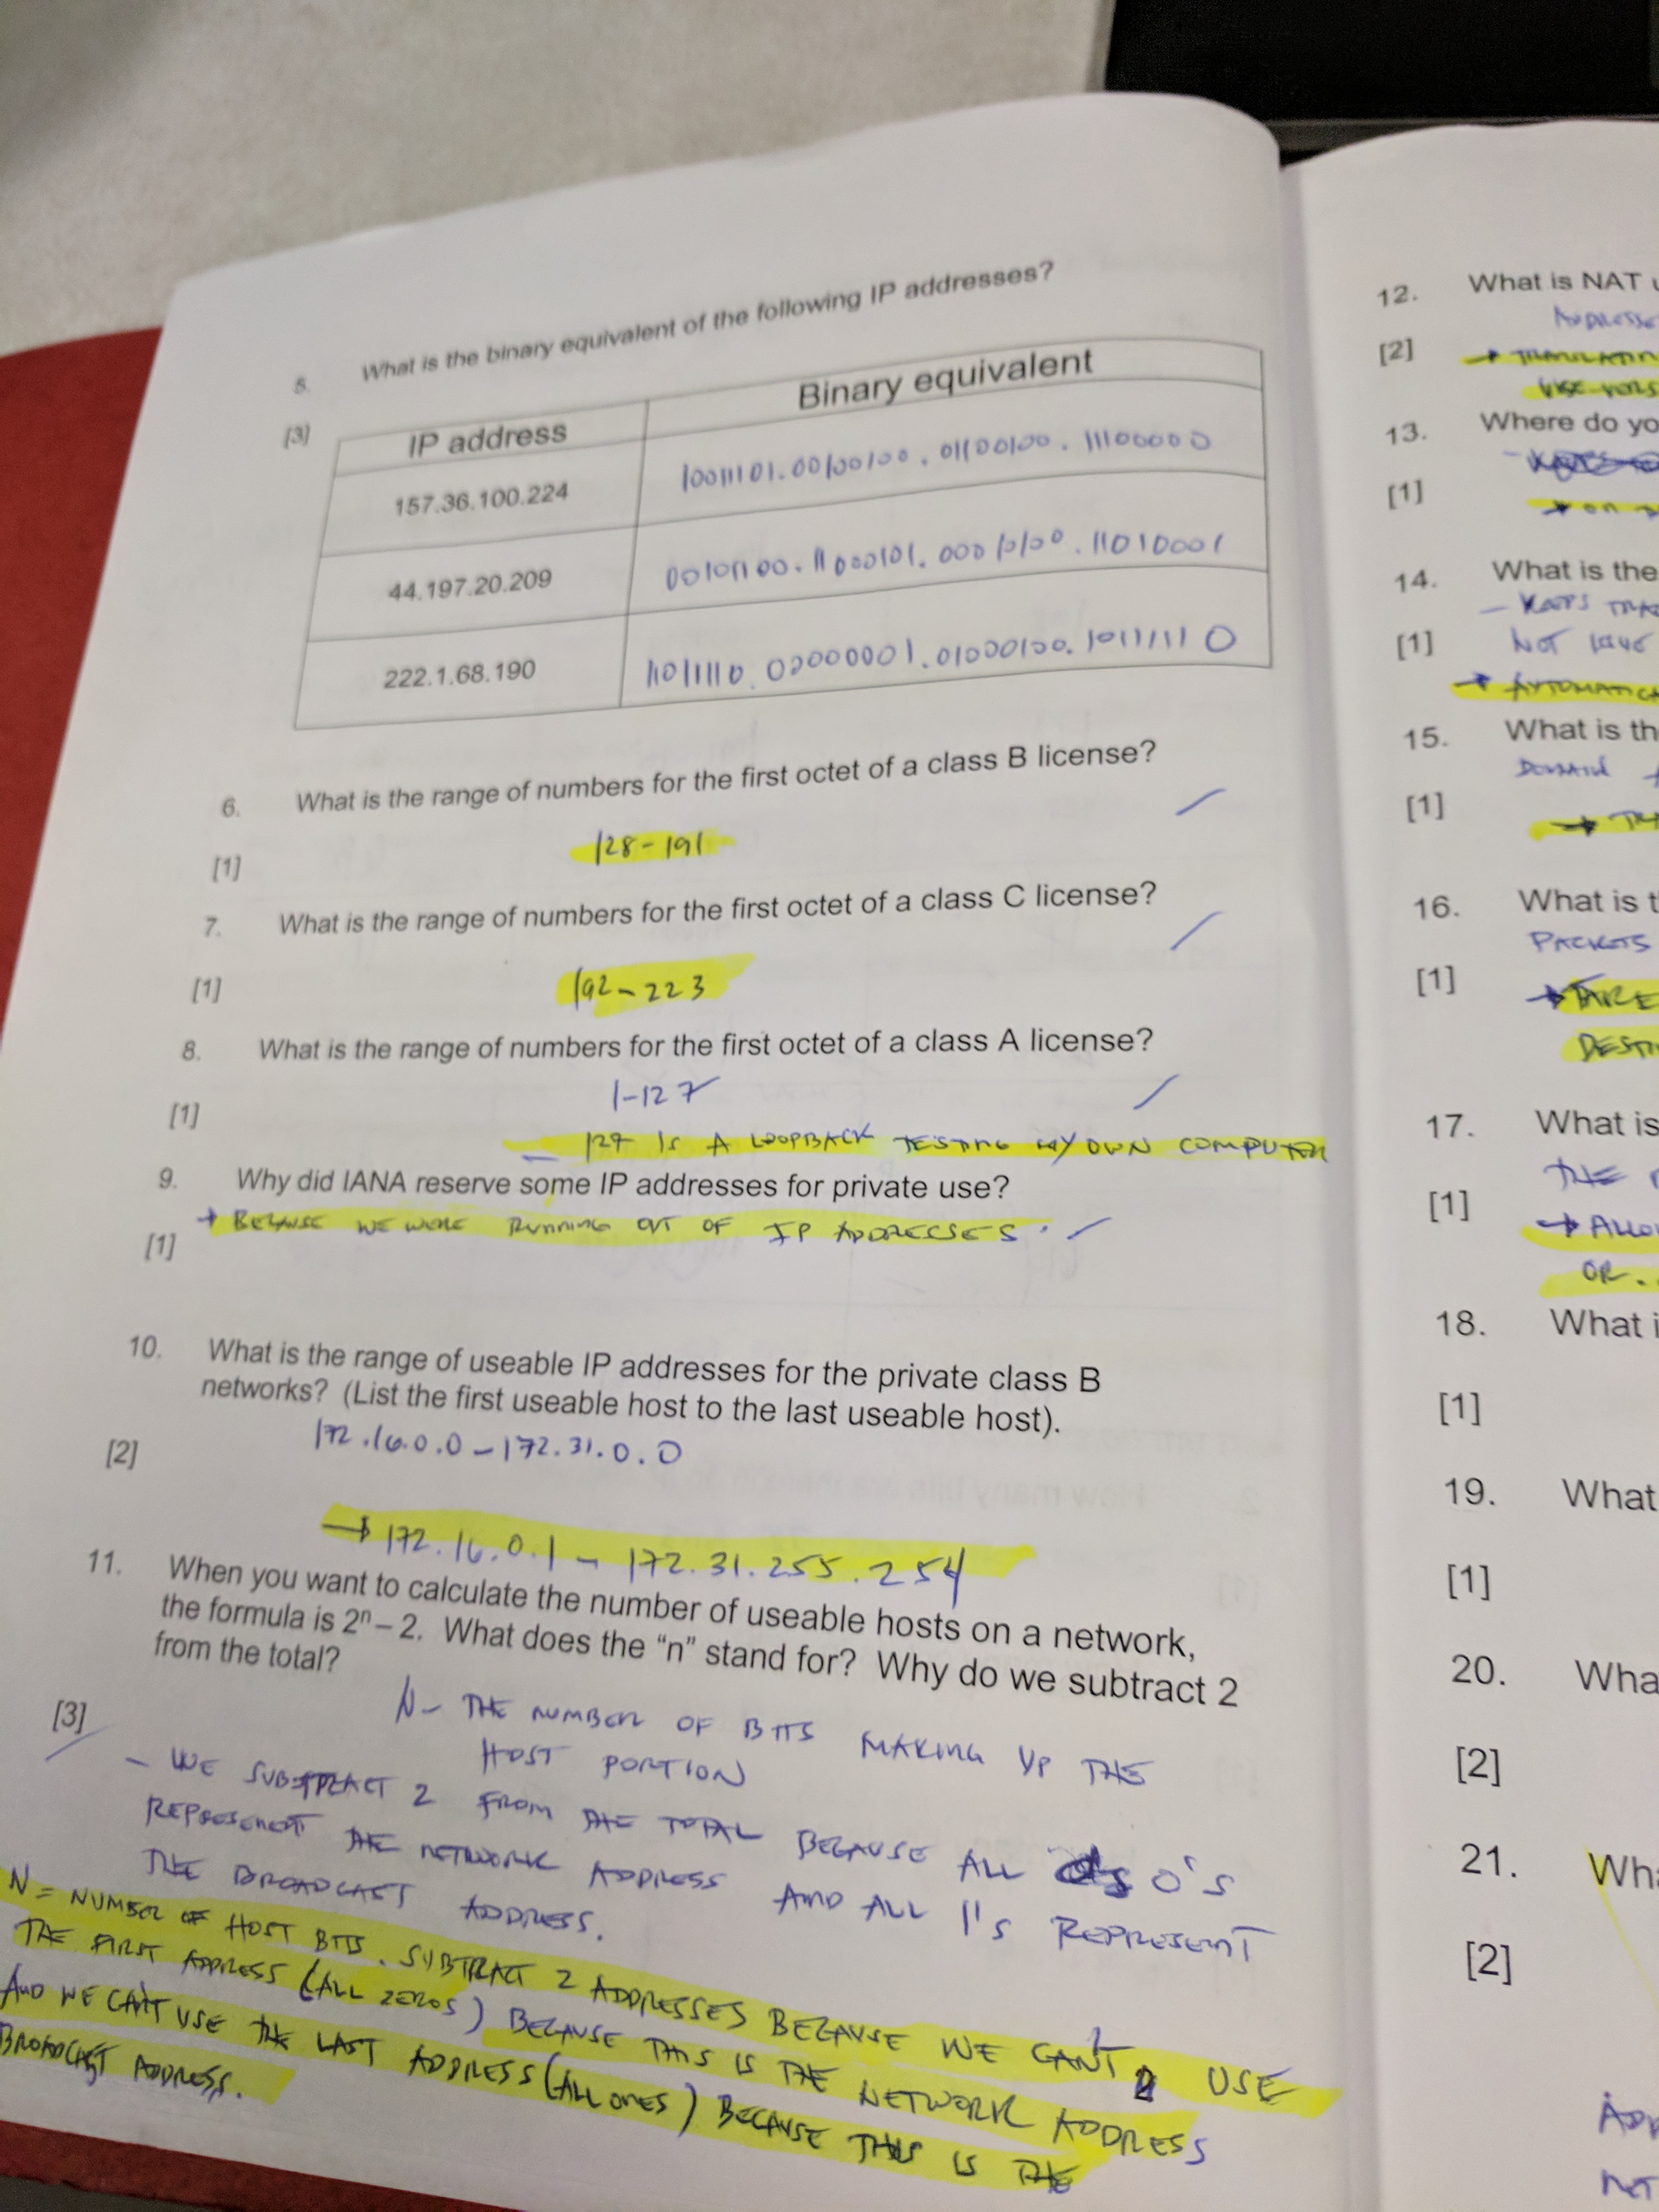 5. What is the binary equivalent of the following IP addresses?
[3]
IP address Binary equivalent
157.36.100.224 10011101.00100100.01100100.11100000
44.197.20.209 00101100.11000101.00010100.11010001
222.1.68.190 11011110.00000001.01000100.10111110
6. What is the range of numbers for the first octet of a class B license?
[1] 128-191
7. What is the range of numbers for the first octet of a class C license?
[1] 192-223
8. What is the range of numbers for the first octet of a class A license?
1-127
[1]
- 127 IS A LOOPBACK TESTING MY OWN COMPUTER
9. Why did IANA reserve some IP addresses for private use?
→ BECAUSE WE WERE RUNNING OUT OF IP ADDRESSES.
[1]
10. What is the range of useable IP addresses for the private class B
networks? (List the first useable host to the last useable host).
172.16.0.0-172.31.0.0
[2]
→ 172.16.0.1 - 172.31.255.254
11. When you want to calculate the number of useable hosts on a network,
the formula is 2ⁿ – 2. What does the “n” stand for? Why do we subtract 2
from the total?
[3]
N- THE NUMBER OF BITS MAKING UP THE
HOST PORTION
- WE SUBTRACT 2 FROM THE TOTAL BECAUSE ALL 0's
REPRESENT THE NETWORK ADDRESS AND ALL 1's REPRESENT
THE BROADCAST ADDRESS.
N = NUMBER OF HOST BITS. SUBTRACT 2 ADDRESSES BECAUSE WE CAN'T USE
THE FIRST ADDRESS (ALL ZEROS) BECAUSE THIS IS THE NETWORK ADDRESS
AND WE CAN'T USE THE LAST ADDRESS (ALL ONES) BECAUSE THIS IS THE
BROADCAST ADDRESS.
12. What is NAT
[2]
13. Where do yo
[1]
→ ON
14. What is the
[1] NOT HAVE
15. What is th
DOMAIN
[1]
16. What is t
PACKETS
[1]
17. What is
THE
[1]
OR.
18. What i
[1]
19. What
[1]
20. Wha
[2]
21. Wha
[2]